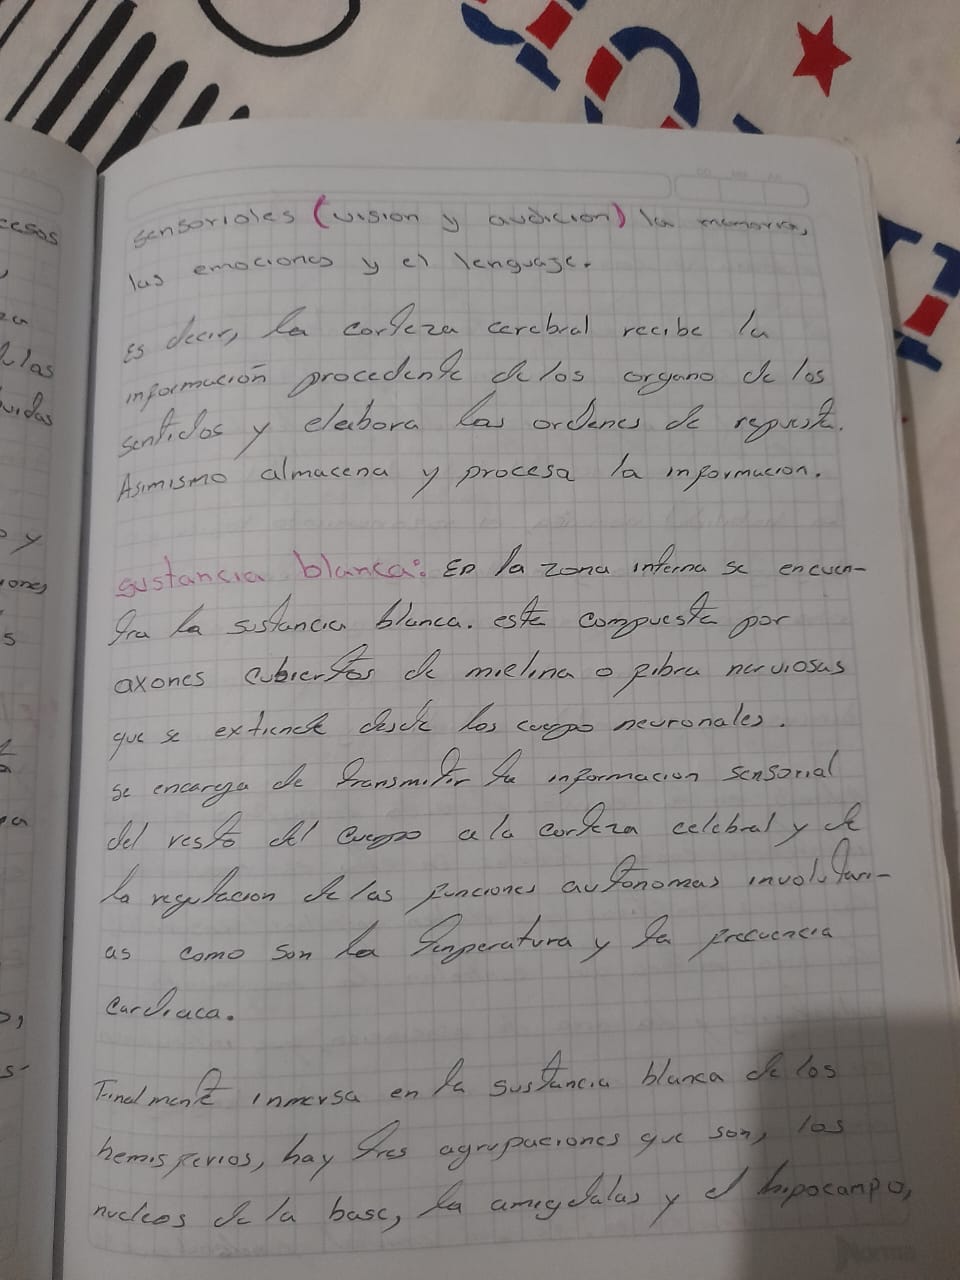 sensoriales (vision y audicion) la memoria,
las emociones y el lenguaje.
Es decir, la corteza cerebral recibe la
información procedente de los organo de los
sentidos y elabora las ordenes de repuesta.
Asimismo almacena y procesa la informacion.
sustancia blanca: En la zona interna se encuen-
tra la sustancia blanca. este compuesta por
axones cubiertos de mielina o fibra nerviosas
que se extiende desde los cuerpo neuronales.
se encarga de transmitir la informacion sensorial
del resto del cuerpo a la corteza celebral y de
la regulacion de las funciones autonomas involutari-
as como son la temperatura y la frecuencia
cardiaca.
Finalmente inmersa en la sustancia blanca de los
hemisferios, hay tres agrupaciones que son, los
nucleos de la base, la amigdalas y el hipocampo,
cesos
las
uidas
o y
iones
s
Norma